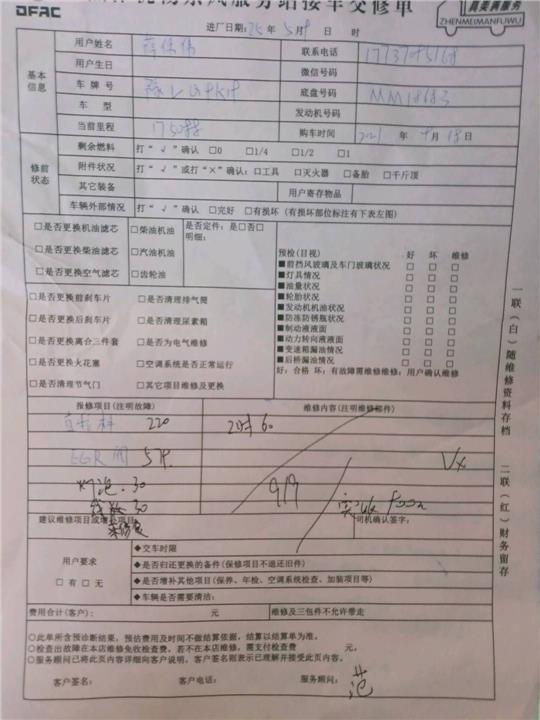 DFAC
服务站接车交修单
真美满服务
ZHENMEIMANFUWU
进厂日期: 年 5月 日 时
基本信息
用户姓名 联系电话
用户生日 微信号码
车 牌 号 底盘号码
车 型 发动机号码
当前里程 购车时间 2021 年 月 日
修前状态
剩余燃料 打“√”确认 □0 □1/4 □1/2 □1
附件状况 打“√”或打“×”确认:□工具 □灭火器 □备胎 □千斤顶
其它装备 用户寄存物品
车辆外部情况 打“√”确认 □完好 □有损坏(有损坏部位标注有下表左图)
□是否更换机油滤芯 □柴油机油 是否定件:是□否□
明细:
□是否更换柴油滤芯 □汽油机油
□是否更换空气滤芯 □齿轮油
□是否更换前刹车片 □是否清理排气筒
□是否更换后刹车片 □是否清理尿素箱
□是否更换离合三件套 □是否为电气维修
□是否更换火花塞 □空调系统是否正常运行
□是否清理节气门 □其它项目维修及更换
预检(目视) 好 坏 维修
■前挡风玻璃及车门玻璃状况 □ □ □
■灯具情况 □ □ □
■油量状况 □ □ □
■轮胎状况 □ □ □
■发动机机油状况 □ □ □
■防冻防锈瓶状况 □ □ □
■制动液液面 □ □ □
■动力转向液液面 □ □ □
■变速箱漏油情况 □ □ □
■后桥漏油情况 □ □ □
好:合格 坏:有故障需维修维修:用户确认维修
报修项目(注明故障) 维修内容(注明维修部件)
220 60
EGR阀
灯泡.30
30 919
建议维修项目或增补项目: 司机确认签字:
用户要求
□有□无
◆交车时限
◆是否归还更换的备件(保修项目不退还旧件)
◆是否增补其他项目(保养、年检、空调系统检查、加装项目等)
◆车辆是否需要清洁:
费用合计(客户): 元 维修及三包件不允许带走
○此单所含预诊断结果,预估费用及时间不做结算依据,结算以结算单为准。
○检查出故障在本店维修免收检查费,若不在本店维修,需支付检查费 元。
○服务顾问已将此页内容详细向客户说明,客户签名则表示已理解并接受此页内容。
客户签名: 客户电话: 服务顾问: 范
一联(白)随维修资料存档
二联(红)财务留存